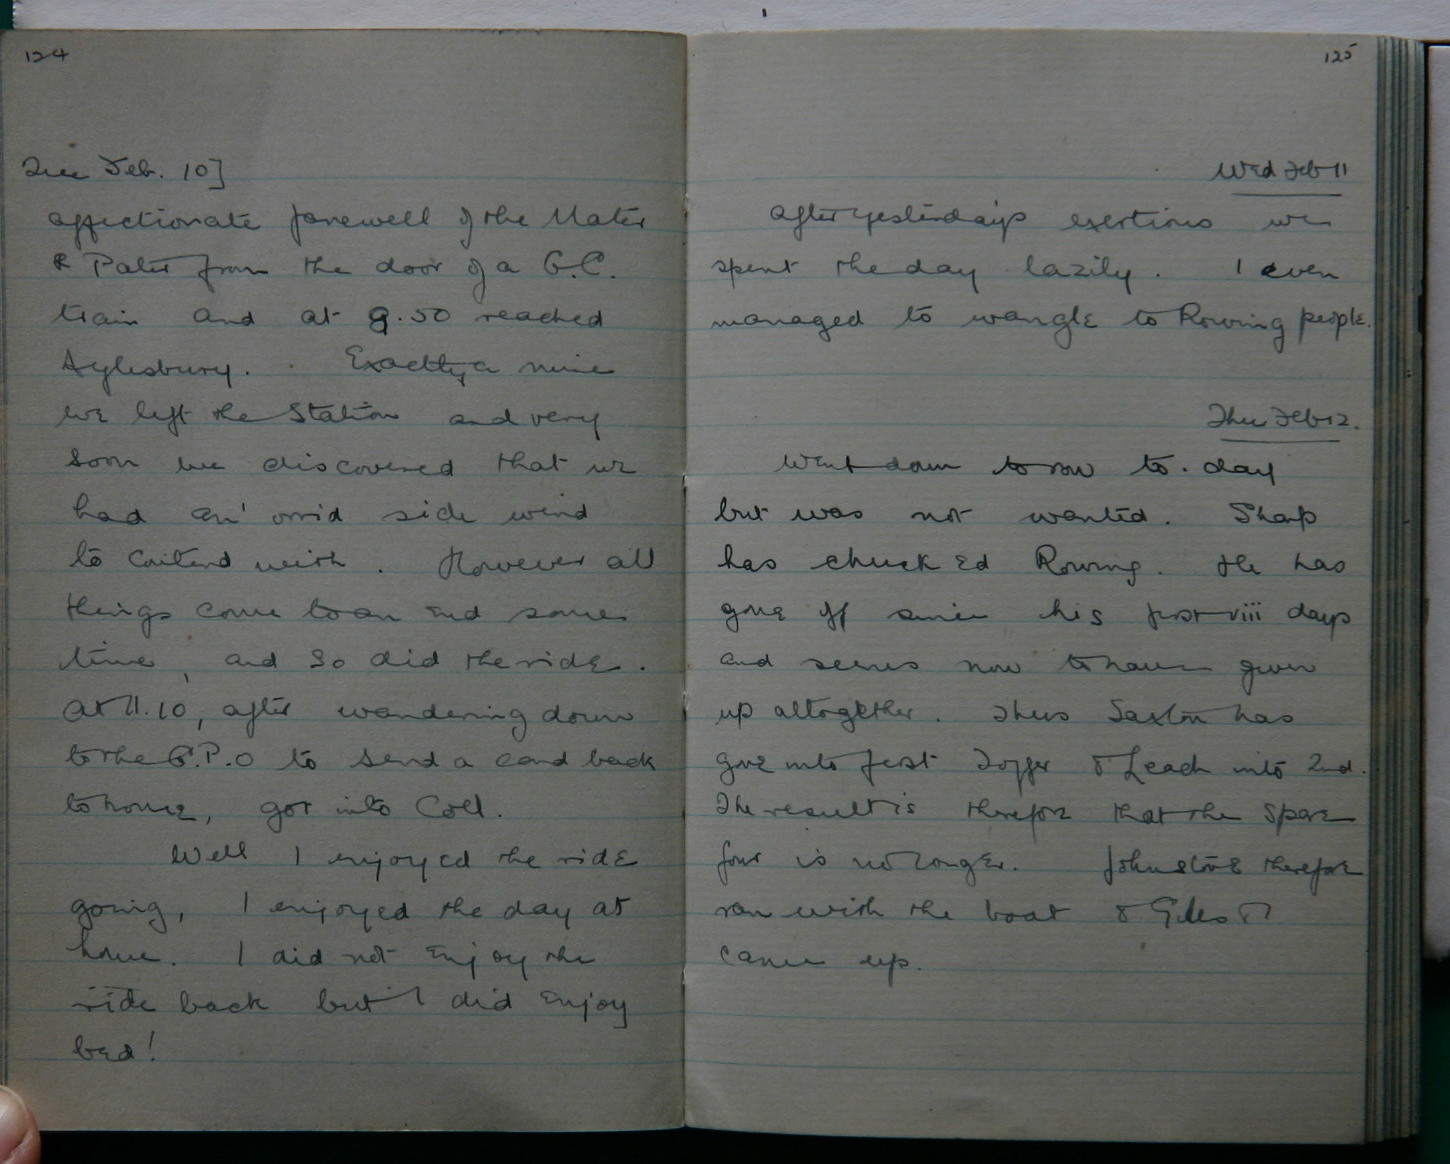 124
Tue Feb. 10]
affectionate farewell of the Mater
& Pater from the door of a G.C.
train and at 9.50 reached
Aylesbury. Exactly a mile
we left the Station and very
soon we discovered that we
had an 'orrid side wind
to contend with. However all
things come to an end some
time, and so did the ride.
At 11.10, after wandering down
to the G.P.O to send a card back
to home, got into Coll.
Well I enjoyed the ride
going, I enjoyed the day at
home. I did not enjoy the
ride back but I did enjoy
bed!
125
Wed Feb 11
After yesterday's exertions we
spent the day lazily. I even
managed to wangle to Rowing people.
Thu Feb 12.
Went down to row to-day
but was not wanted. Sharp
has chucked Rowing. He has
gone off since his first viii days
and seems now to have given
up altogether. Thus Saxton has
gone into first Togger & Leach into 2nd.
The result is therefore that the spare
four is no longer. Johnstone therefore
ran with the boat & Giles
came up.